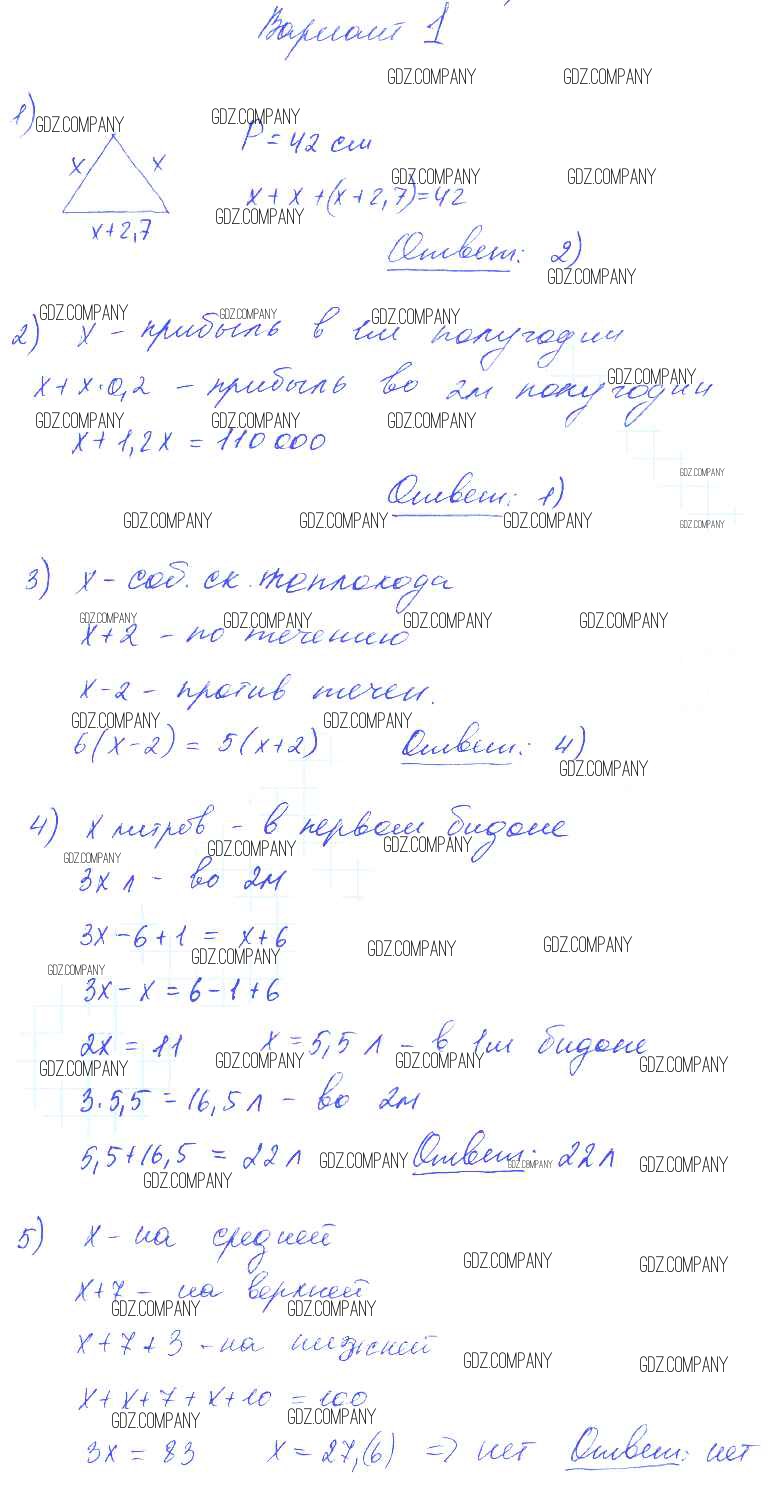 Вариант 1
GDZ.COMPANY GDZ.COMPANY
1) GDZ.COMPANY GDZ.COMPANY
P = 42 см
x x
GDZ.COMPANY GDZ.COMPANY
x + x + (x + 2,7) = 42
GDZ.COMPANY
x+2,7
Ответ: 2)
GDZ.COMPANY
GDZ.COMPANY GDZ.COMPANY GDZ.COMPANY
2) x - прибыль в 1м полугодии
GDZ.COMPANY
x + x·0,2 - прибыль во 2м полугодии
GDZ.COMPANY GDZ.COMPANY GDZ.COMPANY
x + 1,2x = 110 000
GDZ.COMPANY
Ответ: 1)
GDZ.COMPANY GDZ.COMPANY GDZ.COMPANY GDZ.COMPANY
3) x - соб. ск. теплохода
GDZ.COMPANY GDZ.COMPANY GDZ.COMPANY GDZ.COMPANY
x+2 - по течению
x-2 - против течен.
GDZ.COMPANY GDZ.COMPANY
6(x-2) = 5(x+2) Ответ: 4)
GDZ.COMPANY
4) x литров - в первом бидоне
GDZ.COMPANY GDZ.COMPANY GDZ.COMPANY
3x л - во 2м
3x - 6 + 1 = x + 6
GDZ.COMPANY GDZ.COMPANY GDZ.COMPANY
GDZ.COMPANY
3x - x = 6 - 1 + 6
2x = 11 x = 5,5 л - в 1м бидоне
GDZ.COMPANY GDZ.COMPANY GDZ.COMPANY GDZ.COMPANY
3·5,5 = 16,5 л - во 2м
5,5+16,5 = 22 л GDZ.COMPANY Ответ: GDZ.COMPANY 22 л GDZ.COMPANY
GDZ.COMPANY
5) x - на средней
GDZ.COMPANY GDZ.COMPANY
x+7 - на верхней
GDZ.COMPANY GDZ.COMPANY
x + 7 + 3 - на нижней
GDZ.COMPANY GDZ.COMPANY
x + x + 7 + x + 10 = 100
GDZ.COMPANY GDZ.COMPANY
3x = 83 x = 27,(6) => нет Ответ: нет